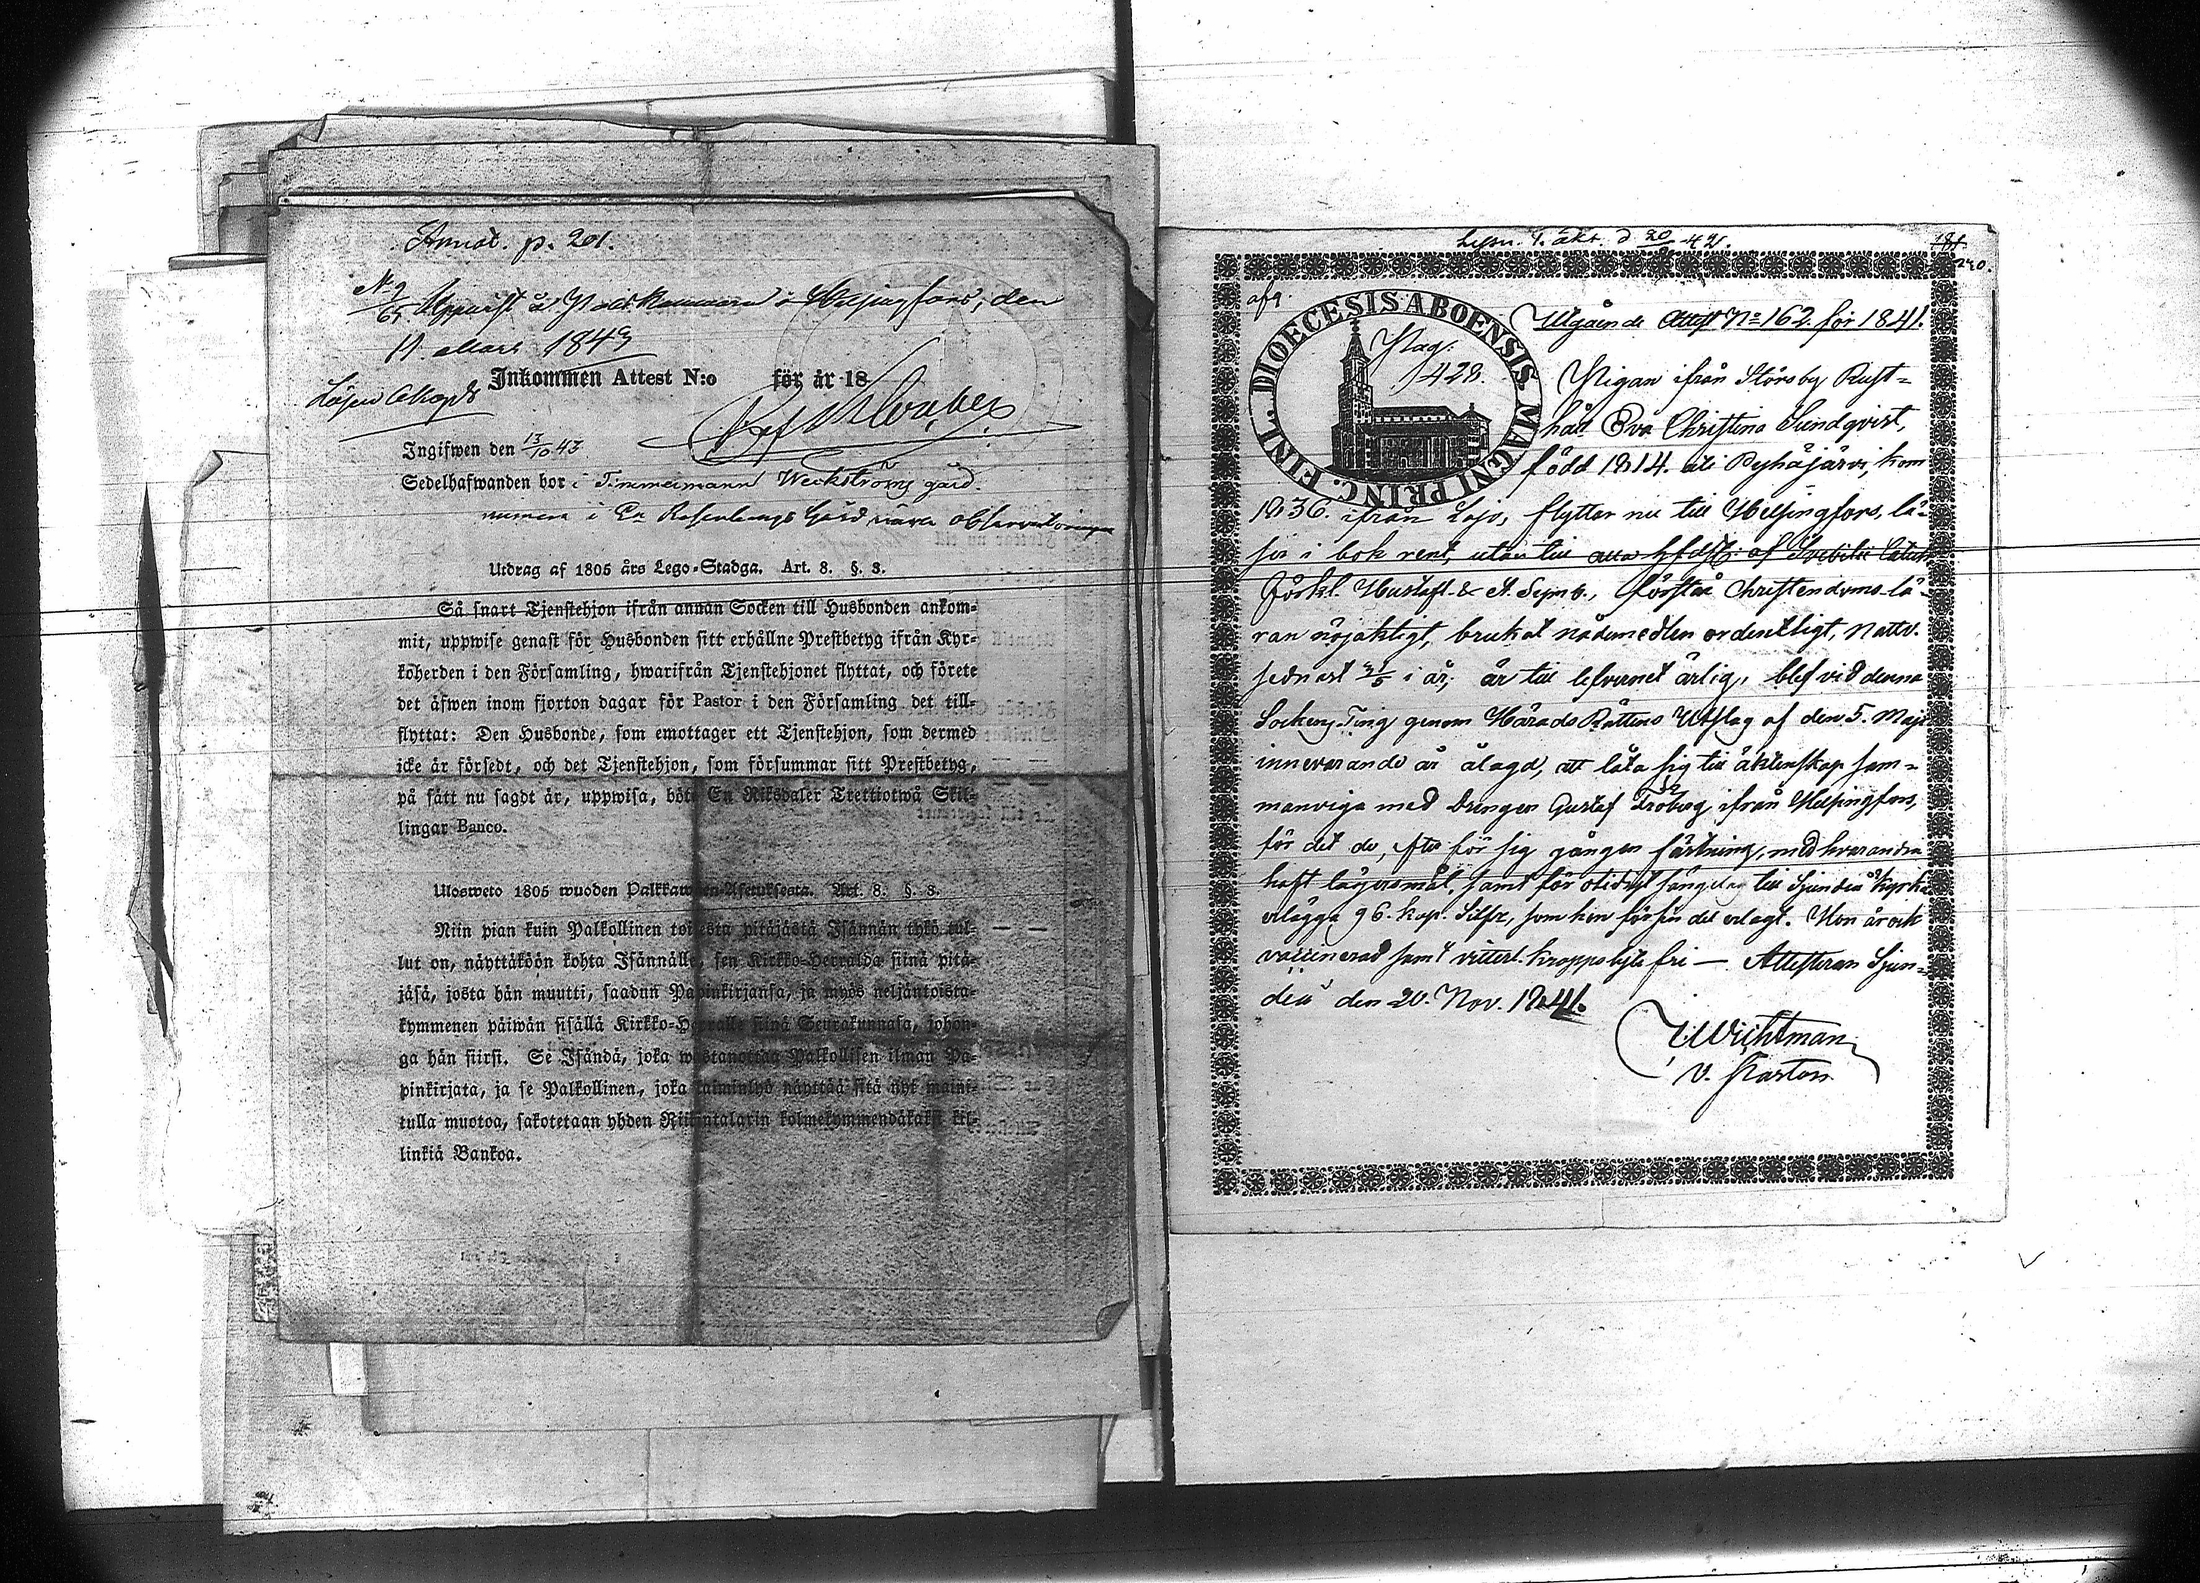 Annot. p. 201.
N 9/65 Uppvist å Poliskammaren i Helsingfors, den
11. Mars 1843
Inkommen Attest N:o för år 18
Ingifwen den 13/10 43
Sedelhafwanden bor i Timmerman Weckströms gård.
numera i En Rosenbergs Gård nära observatorium
Utdrag af 1805 års Lego-Stadga. Art. 8. §. 3.
Så snart Tjenstehjon ifrån annan Socken till Husbonden ankom-
mit, uppwise genast för Husbonden sitt erhållne Prestbetyg ifrån Kyr-
koherden i den Församling, hwarifrån Tjenstehjonet flyttat, och förete
det äfwen inom fjorton dagar för Pastor i den Församling det till-
flyttat: Den Husbonde, som emottager ett Tjenstehjon, som dermed
icke är försedt, och det Tjenstehjon, som försummar sitt Prestbetyg,
på sätt nu sagdt är, uppwisa, böte En Riksdaler Trettiotwå Skil-
lingar Banco.
Ulosweto 1805 wuoden Palkkawäen-Asetuksesta. Art. 8. §. 3.
Niin pian kuin Palkollinen toisesta pitäjästä Isännän tykö tul-
lut on, näyttäköön kohta Isännälle, sen Kirkko-Herralda siinä pitä-
jäsä, josta hän muutti, saadun Papinkirjansa, ja myös neljäntoista-
kymmenen päiwän sisällä Kirkko-Herralle siinä Seurakunnasa, johon-
ga hän siirsi. Se Isändä, joka wastanottaa Palkollisen ilman Pa-
pinkirjata, ja se Palkollinen, joka laiminlyö näyttää sitä nyt maini-
tulla muotoa, sakotetaan yhden Riikintalarin kolmekymmendäkaksi kil-
linkiä Bankoa.
181.
240.
afg.
DIOECESIS ABOENSIS MAGNI PRINC. FINL.
Pag.
1428.
Utgående Attest No 162. för 1841.
Pigan ifrån Störsby Rust-
håll Eva Christina Sundqvist,
född 1814. uti Pyhäjärvi, kom
1836. ifrån Lojo, flyttar nu till Helsingfors, lä-
ser i bok rent, utan till alla hfdst: af Svebilii Catech.
Förkl. Hustafl. & A. Symb., förstår Christendoms lä-
ran nöjaktigt, brukat nådemedlen ordentligt, Nattv.
sednast i år, är till lefvernet ärlig, blef vid denna
Sockens Ting genom Härads Rättens Utslag af den 5. Maji
innevarande år ålagd, att låta sig till äktenskap sam-
manviga med Drengen Gustaf Froberg ifrån Helsingfors,
för det de, efter för sig gången fästning, med hvarandra
haft lägersmål, samt för otidigt sängelag till Sjundeå Kyrka
erlägga 96. kop. Silfr, som hon för sin del erlagt. Hon är ock
vaccinerad samt vitterl. kroppslyte fri — Attesteras Sjun-
deå den 20. Nov. 1841.
Wichtman
v. Pastor.